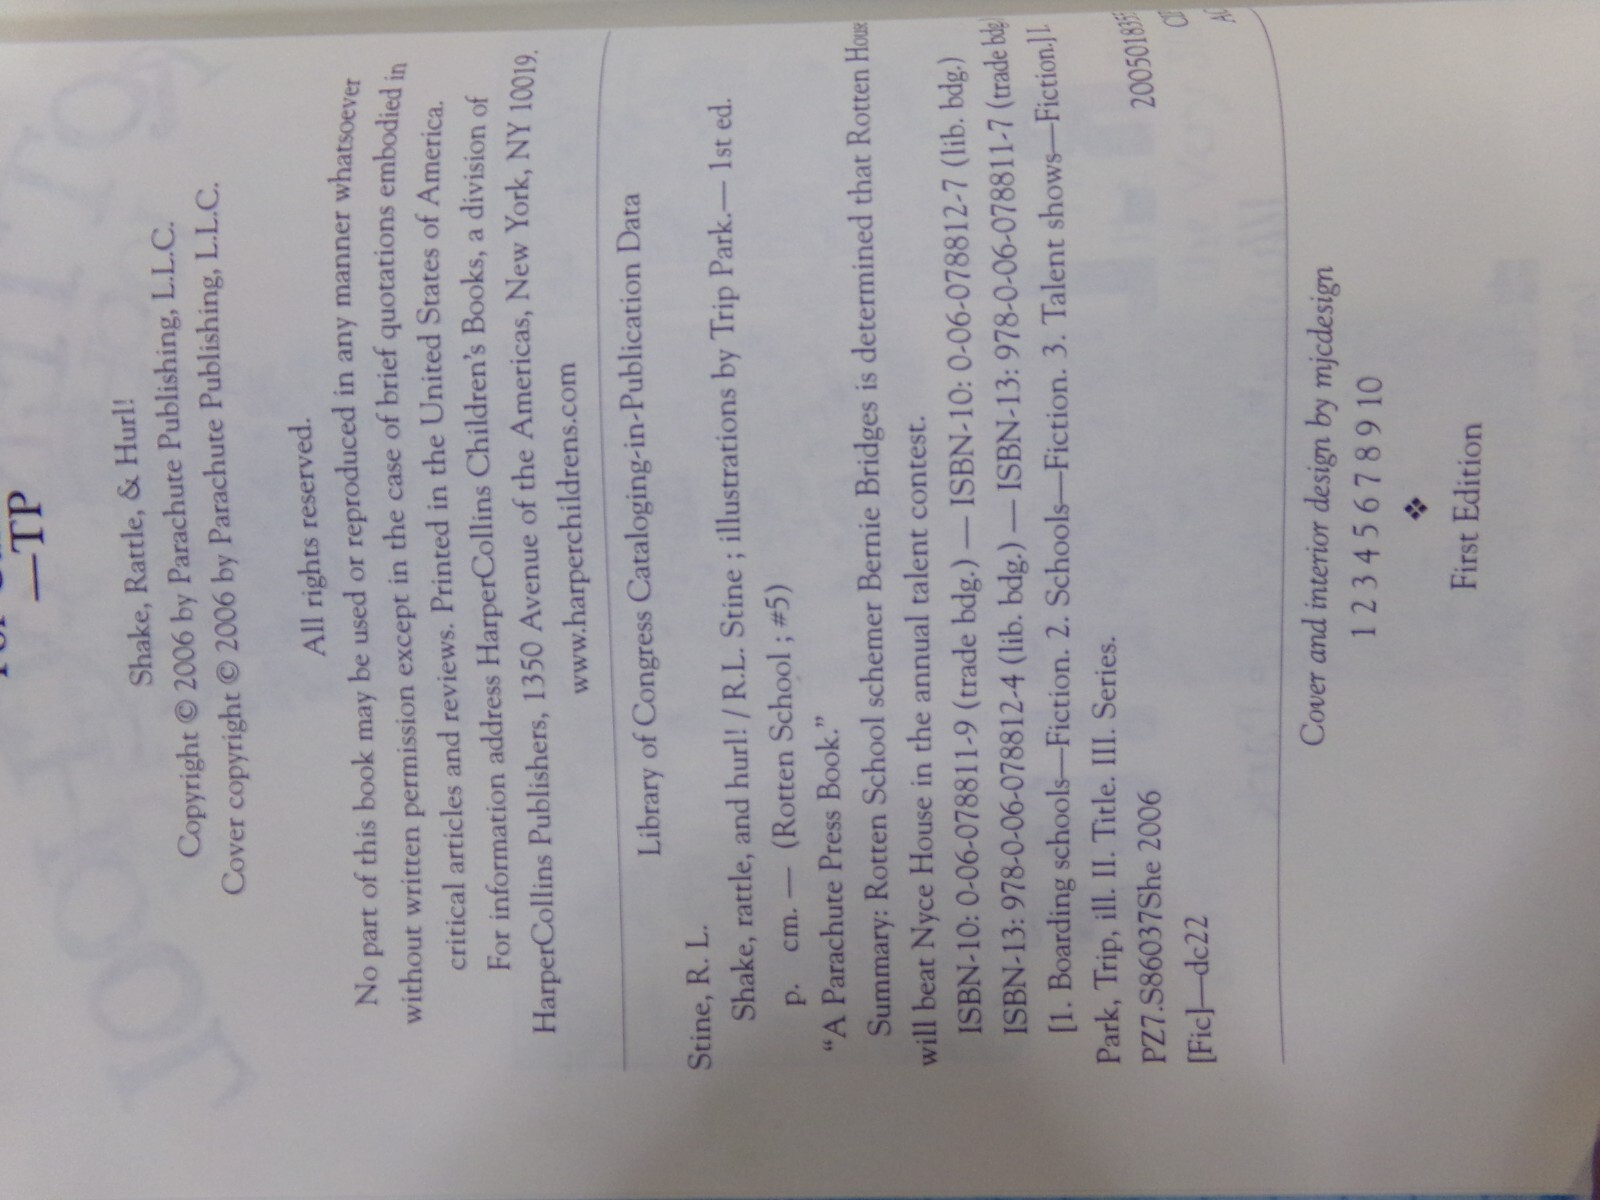 —TP
Shake, Rattle, & Hurl!
Copyright © 2006 by Parachute Publishing, L.L.C.
Cover copyright © 2006 by Parachute Publishing, L.L.C.
All rights reserved.
No part of this book may be used or reproduced in any manner whatsoever
without written permission except in the case of brief quotations embodied in
critical articles and reviews. Printed in the United States of America.
For information address HarperCollins Children's Books, a division of
HarperCollins Publishers, 1350 Avenue of the Americas, New York, NY 10019.
www.harperchildrens.com
Library of Congress Cataloging-in-Publication Data
Stine, R. L.
Shake, rattle, and hurl! / R.L. Stine ; illustrations by Trip Park.— 1st ed.
p. cm. — (Rotten School ; #5)
“A Parachute Press Book.”
Summary: Rotten School schemer Bernie Bridges is determined that Rotten House
will beat Nyce House in the annual talent contest.
ISBN-10: 0-06-078811-9 (trade bdg.) — ISBN-10: 0-06-078812-7 (lib. bdg.)
ISBN-13: 978-0-06-078812-4 (lib. bdg.) — ISBN-13: 978-0-06-078811-7 (trade bdg.)
[1. Boarding schools—Fiction. 2. Schools—Fiction. 3. Talent shows—Fiction.] I.
Park, Trip, ill. II. Title. III. Series.
PZ7.S86037She 2006
[Fic]—dc22
Cover and interior design by mjcdesign
1 2 3 4 5 6 7 8 9 10
❖
First Edition